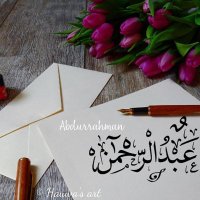 Abdurrahman
عَبْدُ الرَّحْمٰنْ
© Hauwa's art